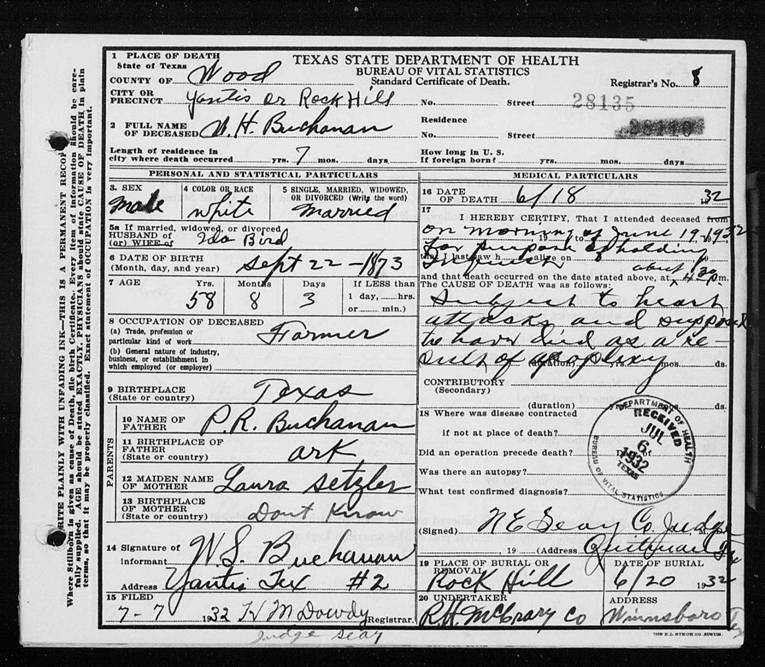 WRITE PLAINLY WITH UNFADING INK—THIS IS A PERMANENT RECORD
Where Stillborn is given as cause of Death, file birth Certificate. Every item of information should be carefully supplied. AGE should be stated EXACTLY. PHYSICIANS should state CAUSE OF DEATH in plain terms, so that it may be properly classified. Exact statement of OCCUPATION is very important.
TEXAS STATE DEPARTMENT OF HEALTH
BUREAU OF VITAL STATISTICS
Standard Certificate of Death.
1 PLACE OF DEATH
State of Texas
COUNTY OF Wood
Registrar's No. 8
CITY OR PRECINCT Yantis or Rock Hill No. Street 28135
2 FULL NAME OF DECEASED W. H. Buchanan
Residence No. Street
Length of residence in city where death occurred yrs. 7 mos. days
How long in U. S. If foreign born? yrs. mos. days
PERSONAL AND STATISTICAL PARTICULARS
3. SEX male
4 COLOR OR RACE white
5 SINGLE, MARRIED, WIDOWED, OR DIVORCED (Write the word) married
5a If married, widowed, or divorced
HUSBAND OF (or) WIFE of Ida Bird
6 DATE OF BIRTH (Month, day, and year) Sept 22-1873
7 AGE Years 58 Months 8 Days 3 If LESS than 1 day, hrs or min.
8 OCCUPATION OF DECEASED
(a) Trade, profession or particular kind of work Farmer
(b) General nature of industry, business, or establishment in which employed (or employer)
9 BIRTHPLACE (State or country) Texas
PARENTS
10 NAME OF FATHER P. R. Buchanan
11 BIRTHPLACE OF FATHER (State or country) ark
12 MAIDEN NAME OF MOTHER Laura Setzler
13 BIRTHPLACE OF MOTHER (State or country) Dont Know
14 Signature of informant W. S. Buchanan
Address Yantis Tex #2
15 FILED 7-7 1932 H M Dowdy Registrar.
Judge Seay
MEDICAL PARTICULARS
16 DATE OF DEATH 6/18 1932
17 I HEREBY CERTIFY, That I attended deceased from
on morning of June 19-1932
for purpose of holding
Inquest
and that death occurred on the date stated above, at about 4:30 m.
The CAUSE OF DEATH was as follows:
Subject to heart
attacks and suppose
he have died as a re-
sult of apoplexy
(duration) yrs. mos. ds.
CONTRIBUTORY (Secondary)
(duration) yrs. mos. ds.
18 Where was disease contracted
if not at place of death?
Did an operation precede death?
Was there an autopsy?
What test confirmed diagnosis?
DEPARTMENT OF HEALTH
RECEIVED
JUL
6
1932
TEXAS
BUREAU OF VITAL STATISTICS
(Signed) N E Seay Co. Judge
, 19 (Address Quitman Tex
19 PLACE OF BURIAL OR REMOVAL Rock Hill 6/20 1932
20 UNDERTAKER R. H. McCrary Co ADDRESS Winnsboro Tex